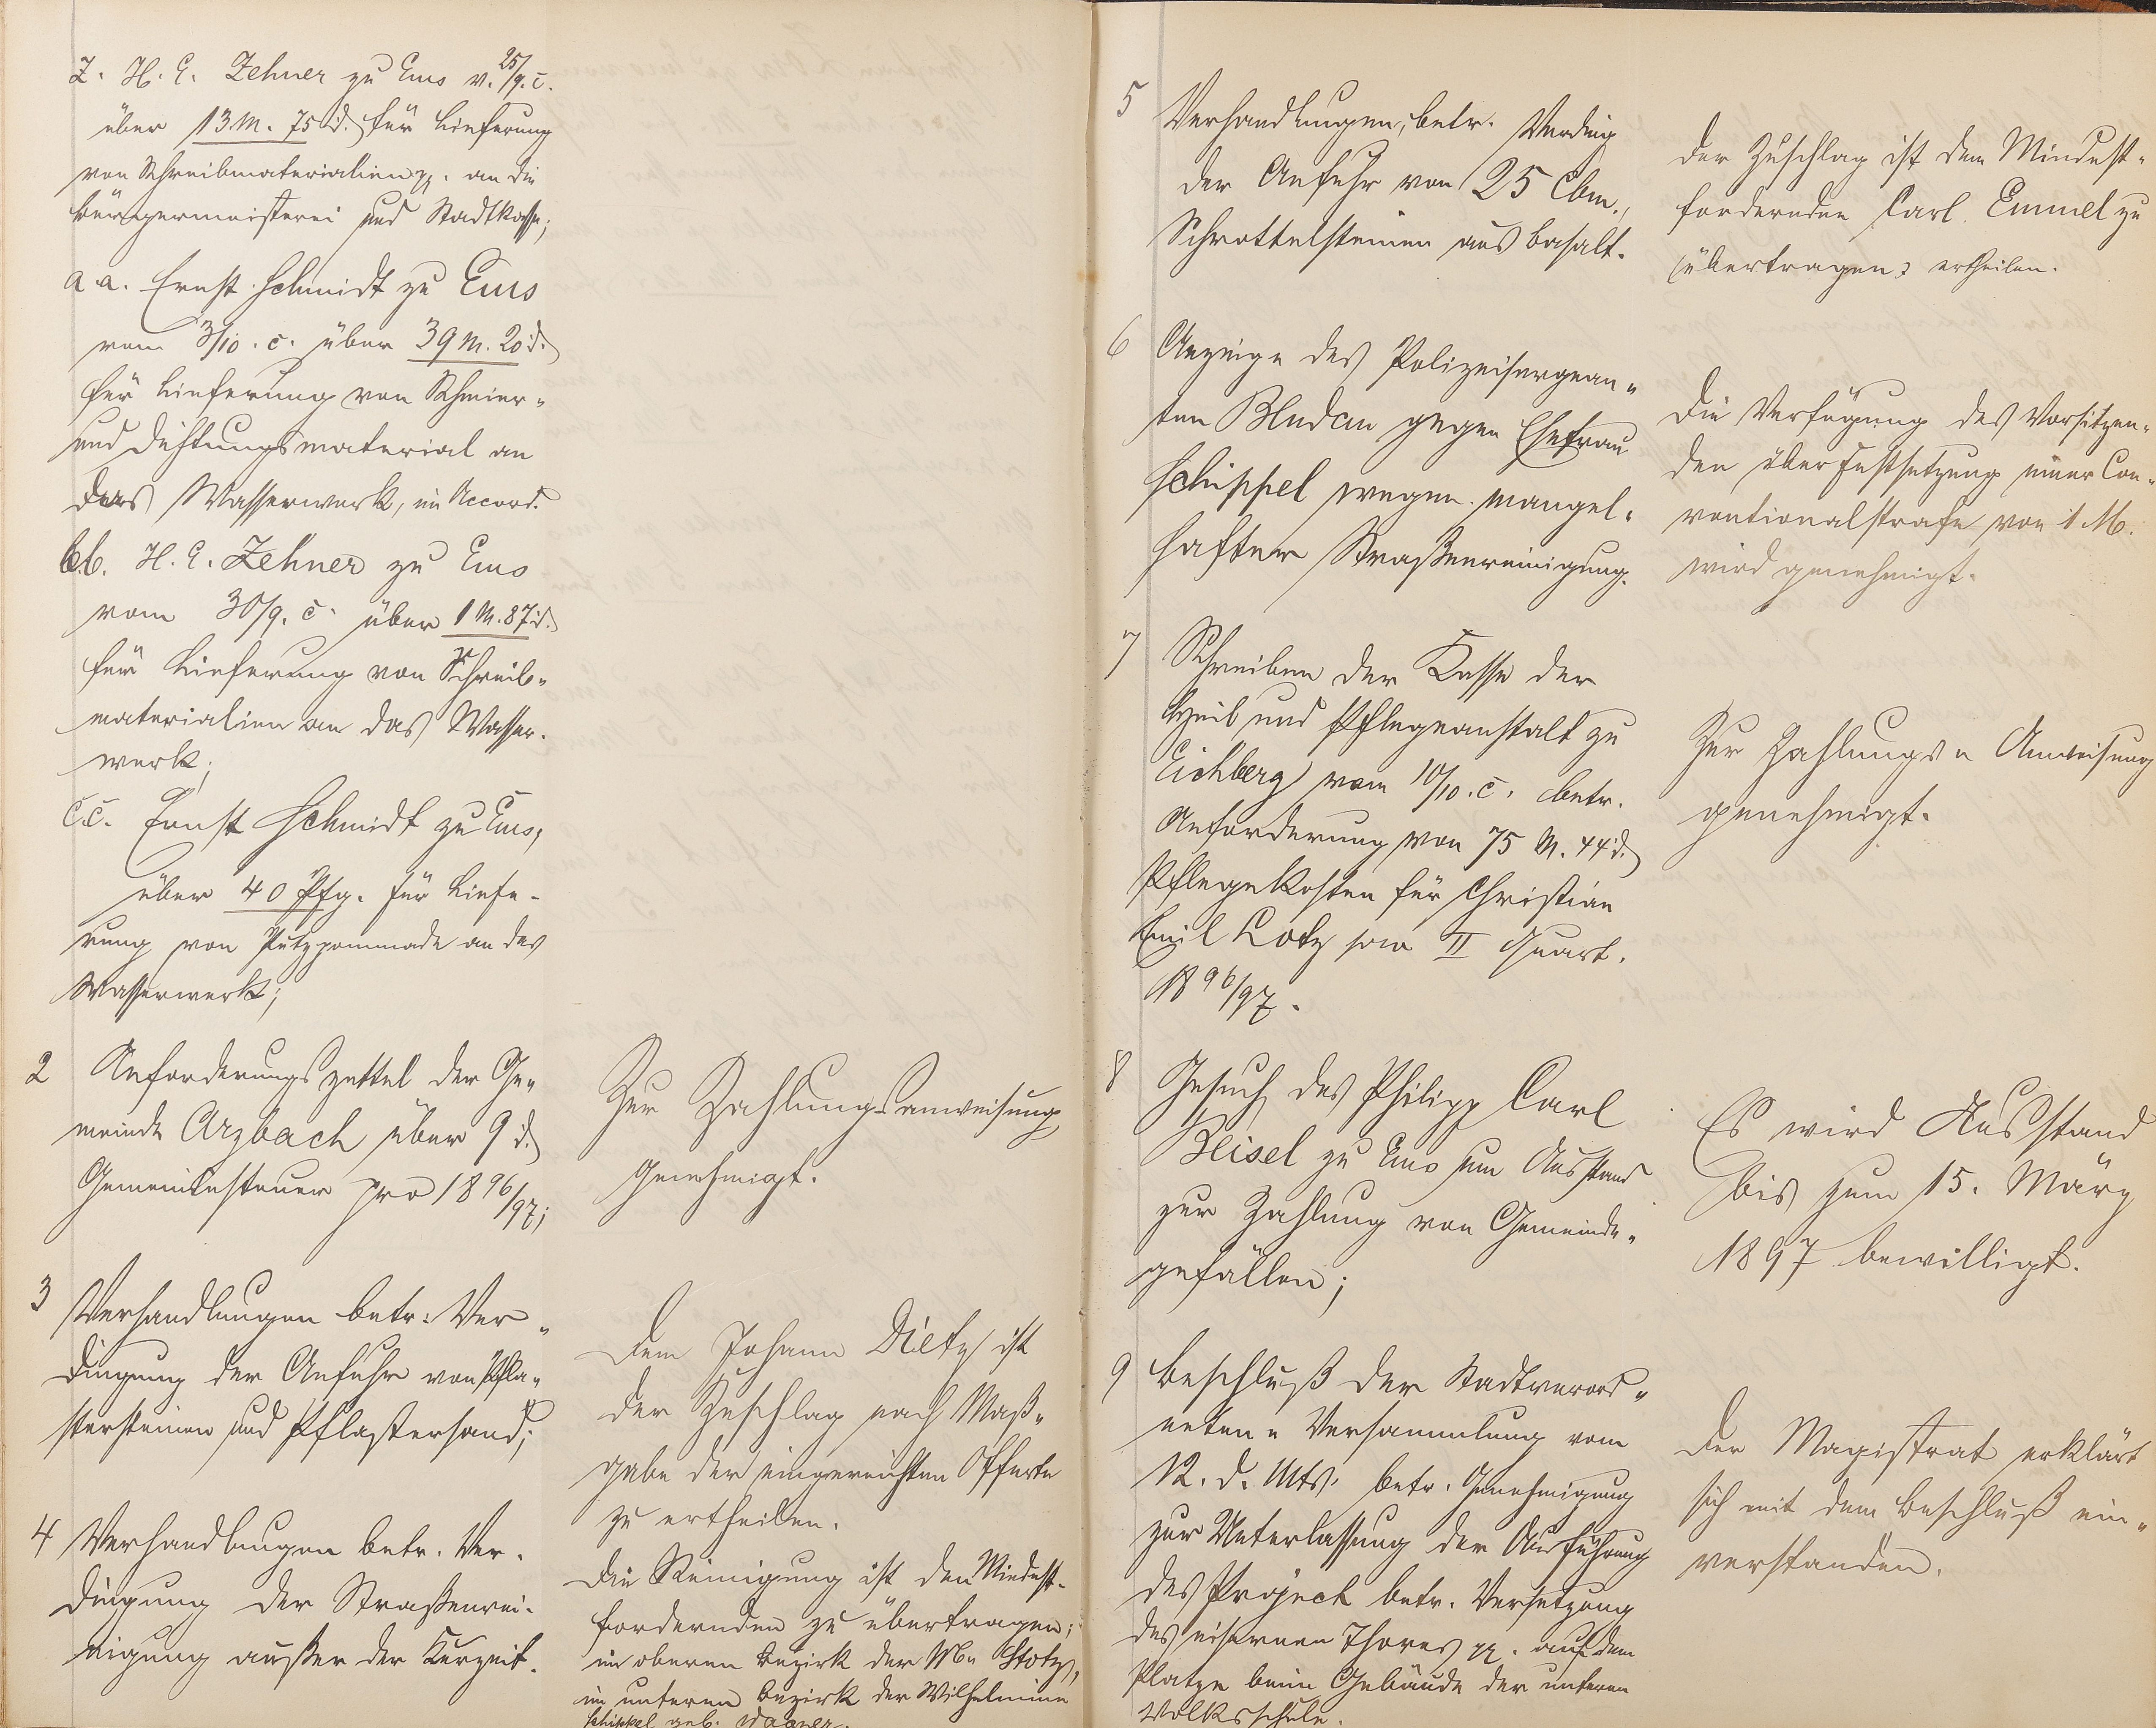 Z. H. C. Zehner zu Ems v. 25/9. c.
über 13 M. 75 d. für Lieferung
von Schreibmaterialien pp. an die
Bürgermeisterei und Stadtkasse;
a a. Ernst Schmidt zu Ems
vom 3/10. c. über 39 M. 20 d.
für Lieferung von Schmier-
und Dichtungsmaterial an
das Wasserwerk, im Accord.
bb. H. C. Zehner zu Ems
vom 30/9. c. über 1 M. 87 d.
für Lieferung von Schreib-
materialien an das Wasser-
werk;
cc. Ernst Schmidt zu Ems,
über 40 Pfg. für Liefe-
rung von Putzpommade an das
Wasserwerk;
2 Anforderungszettel der Ge-
meinde Arzbach über 9 d.
Gemeindesteuer pro 1896/97;
Zur Zahlungsanweisung
genehmigt.
3 Verhandlungen betr. Ver-
dingung der Anfuhr von Pfla-
stersteinen und Pflastersand;
Dem Johann Dietz ist
der Zuschlag nach Maß-
gabe der eingereichten Offerte
zu ertheilen.
4 Verhandlungen betr. Ver-
dingung der Straßenrei-
nigung außer der Kurzeit.
Die Reinigung ist den Mindest-
fordernden zu übertragen;
im oberen Bezirk der Stotz,
im unteren Bezirk der Wilhelmine
Schippel geb. Wagner.
5 Verhandlungen, betr. Verding
der Anfuhr von 25 Cbm.,
Schrottelsteinen aus Basalt.
Der Zuschlag ist dem Mindest-
fordernden Carl Emmel zu
(übertragen) ertheilen.
6 Anzeige des Polizeisergean-
ten Bludau gegen Ehefrau
Schippel wegen mangel-
hafter Straßenreinigung.
Die Verfügung des Vorsitzen-
den über Festsetzung einer Con-
ventionalstrafe von 1 M.
wird genehmigt.
7 Schreiben der Kasse der
Heil und Pflegeanstalt zu
Eichberg vom 10/10. c. betr.
Anforderung von 75 M. 44 d.
Pflegekosten für Christian
Emil Lotz pro II Quart.
1896/97.
Zur Zahlungs- Anweisung
genehmigt.
8 Gesuch des Philipp Carl
Beisel zu Ems um Ausstand
zur Zahlung von Gemeinde-
gefällen;
Es wird Ausstand
bis zum 15. März
1897 bewilligt.
9 Beschluß der Stadtverord-
neten- Versammlung vom
12. d. Mts. betr. Genehmigung
zur Unterlassung der Ausführung
des Project betr. Versetzung
des eisernen Thores pp. auf dem
Platze beim Gebäude der unteren
Volksschule.
Der Magistrat erklärt
sich mit dem Beschluß ein-
verstanden.